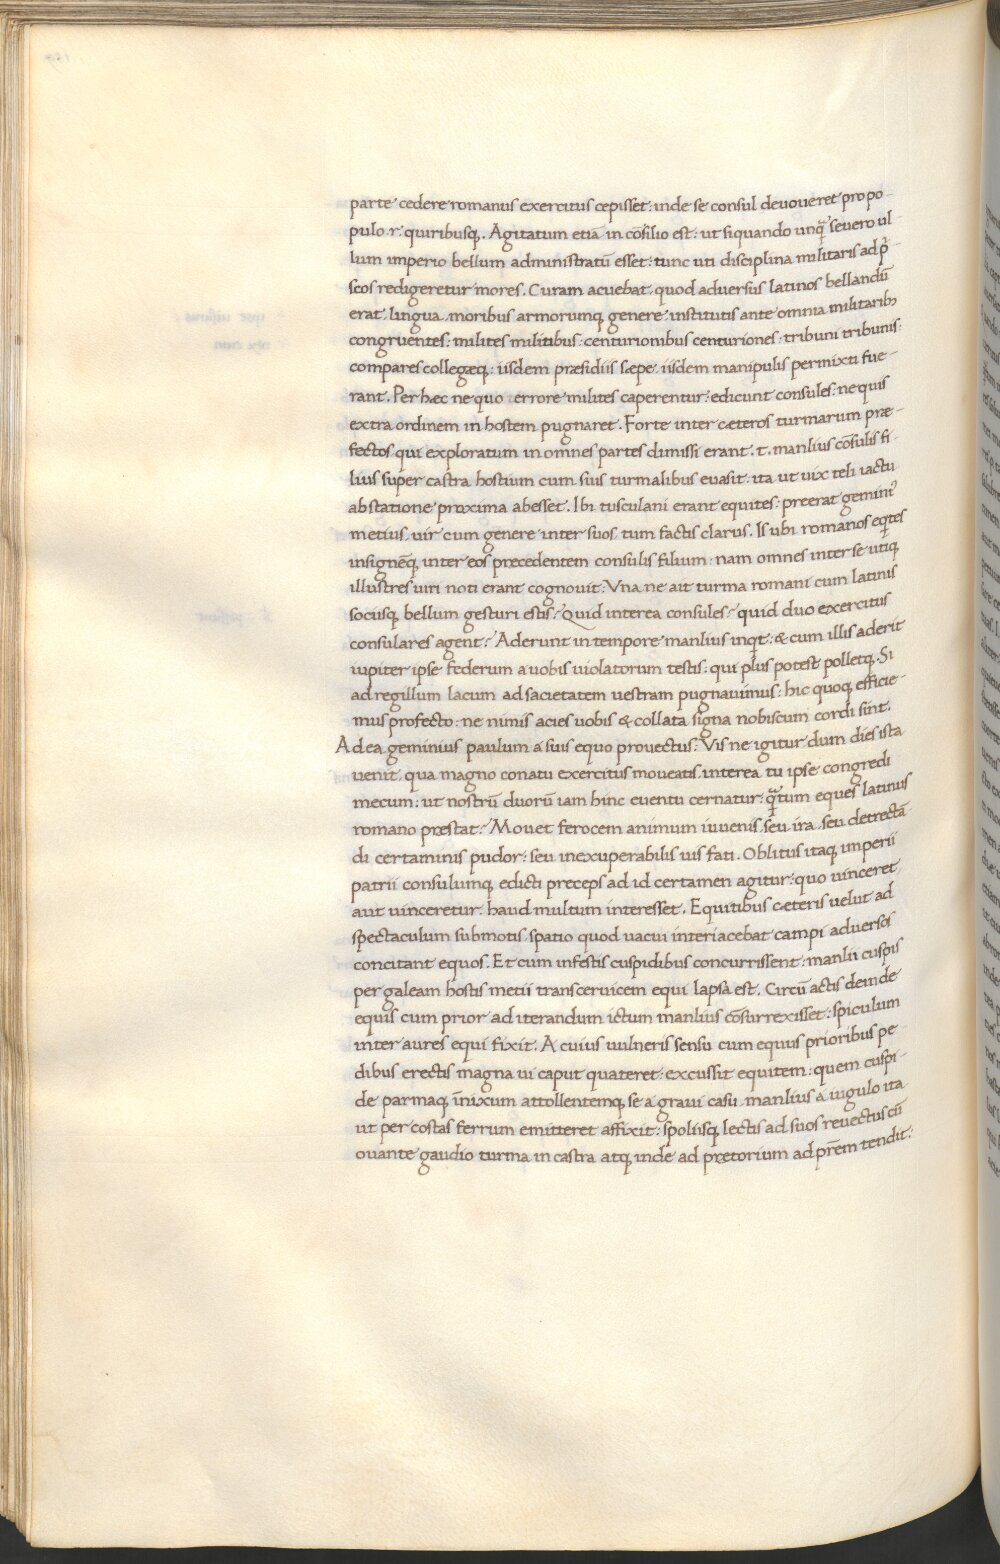 parte cedere romanus exercitus cepisset: inde se consul devoveret pro po-
pulo .r. quiribusq;. Agitatum etiā in cōsilio est: ut siquando unq̄ severo ul
lum imperio bellum administratū esset: tunc uti disciplina militaris ad p̄
scos redigeretur mores. Curam acuebat quod adversus latinos bellandū
erat lingua moribus armorumq; genere institutis ante omnia militarib;
congruentes: milites militibus: centurionibus centuriones: tribuni tribunis:
compares collegæq;: iisdem præsidiis sæpe iisdem manipulis permixti fue-
rant. Per hæc ne quo errore milites caperentur: edicunt consules: nequis
extra ordinem in hostem pugnaret. Forte inter cæteros turmarum præ-
fectos qui exploratum in omnes partes dimissi erant .t. manlius cōsulis fi-
lius super castra hostium cum suis turmalibus evasit: ita ut vix teli iactu
ab statione proxima abesset. Ibi tusculani erant equites: preerat gemin⁹
metius vir cum genere inter suos tum factis clarus. Is ubi romanos eq̇tes
insignēq; inter eos precedentem consulis filium: nam omnes inter se utiq;
illustres viri noti erant cognovit: Vna ne ait turma romani cum latinis
sociisq; bellum gesturi estis? Quid interea consules? quid duo exercitus
consulares agent? Aderunt in tempore manlius inqt: & cum illis aderit
iupiter ipse federum a vobis violatorum testis: qui plus potest polletq;. Si
ad regillum lacum ad sacietatem vestram pugnavimus: hic quoq; efficie-
mus profecto: ne nimis acies vobis & collata signa nobiscum cordi sint.
Ad ea geminius paulum a suis equo provectus: Vis ne igitur dum dies ista
venit qua magno conatu exercitus moveatis interea tu ipse congredi
mecum: ut nostrū duorū iam hinc eventu cernatur: q̄tum eques latinus
romano præstat? Movet ferocem animum iuvenis seu ira seu detrectā
di certaminis pudor: seu inexuperabilis vis fati. Oblitus itaq; imperii
patrii consulumq; edicti preceps ad id certamen agitur: quo vinceret
aut vinceretur haud multum interesset. Equitibus cæteris velut ad
spectaculum submotis spatio quod vacui interiacebat campi adversos
concitant equos. Et cum infestis cuspidibus concurrissent: manlii cuspis
per galeam hostis metii trans cervicem equi lapsa est. Circū actis deinde
equis cum prior ad iterandum ictum manlius cōsurrexisset: spiculum
inter aures equi fixit. A cuius vulneris sensu cum equus prioribus pe
dibus erectis magna vi caput quateret: excussit equitem: quem cuspi-
de parmaq; īnixum attollentemq; se a gravi casu manlius a iugulo ita
ut per costas ferrum emitteret affixit: spoliisq; lectis ad suos revectus cū
ovante gaudio turma in castra atq; inde ad prætorium ad p̄rem tendit: